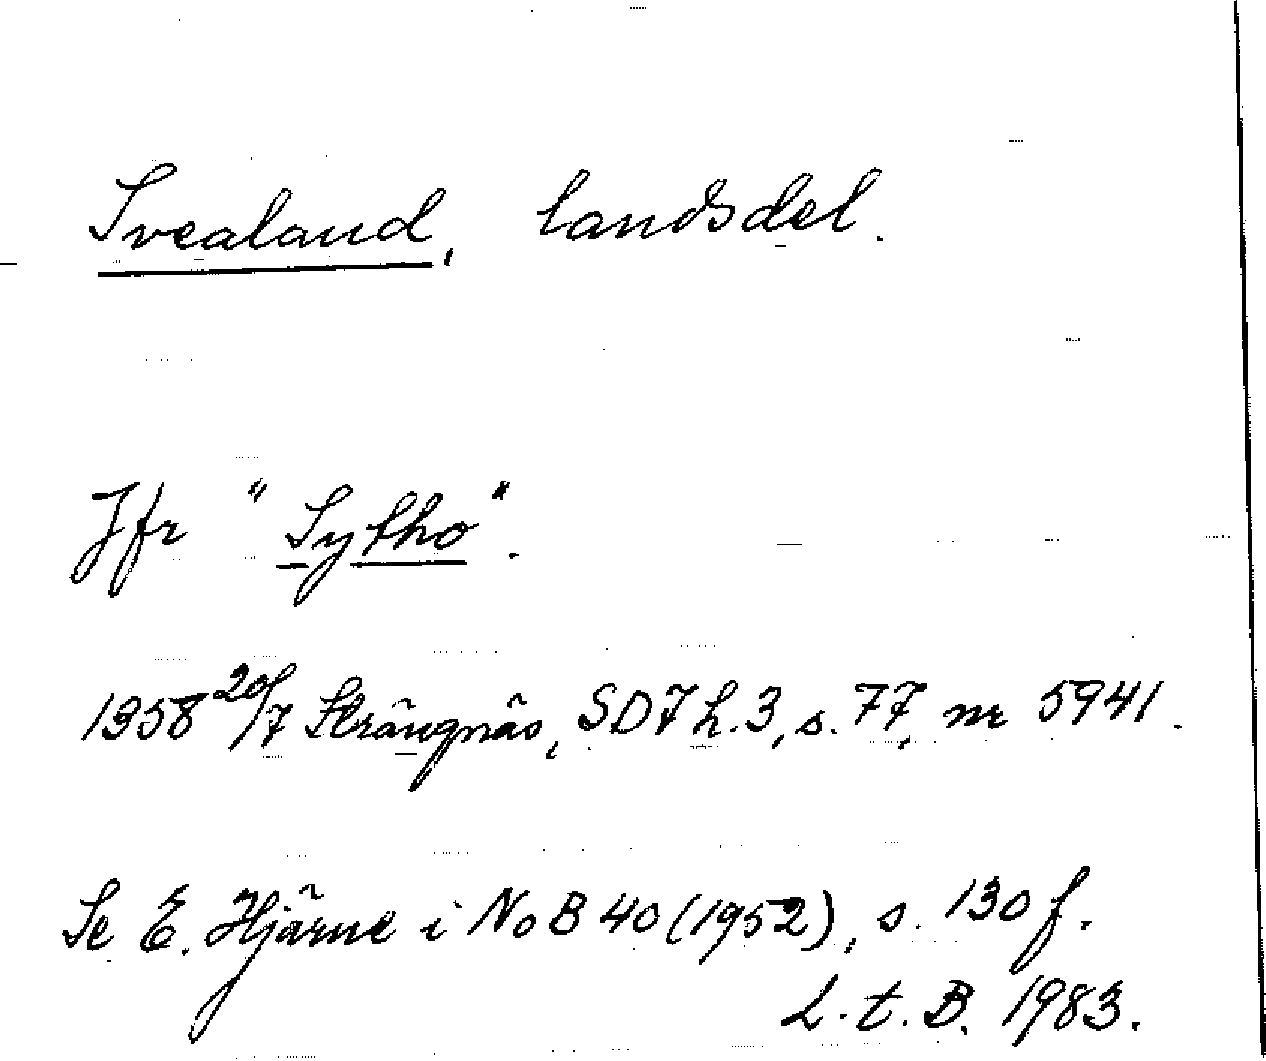 Svealand, landsdel.
Jfr "Sytho".
1358 20/7 Strängnäs, SD 7 h. 3, s. 77, nr 5941.
Se E. Hjärne i NoB 40 (1952), s. 130 f.
L. t. B. 1983.